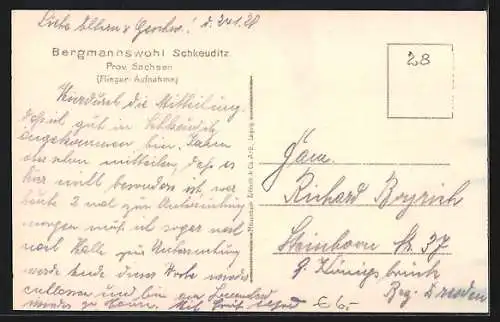 Liebe Eltern u. Geschw.! d. 24.1.28
Bergmannswohl Schkeuditz
Prov. Sachsen
(Flieger-Aufnahme)
28
Hierdurch die Mitteilung,
daß ich gut in Schkeuditz
angekommen bin. Kann
mitteilen, daß es
hier nicht besonders ist, war
heute 2 mal zur Untersuchung
morgen muß ich sogar noch
nach Halle zur Untersuchung
werde Ende dieser Woche wieder
entlassen und bin am Sonnabend
wieder zu Hause. Mit Gruß
Fam.
Richard
Steinborn Nr. 37
b. Königsbrück
Bez. Dresden
€ 6,-